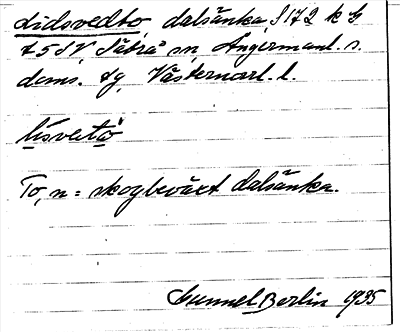 Lidsvedbo, dalsänka, S 172 k b
t 5 SV Tåtrå sn, Ångermanl. s.
doms. tg, Västernorrl. l.
lisvetö
To, n = skogbeväxt dalsänka.
Gunnel Berlin 1935